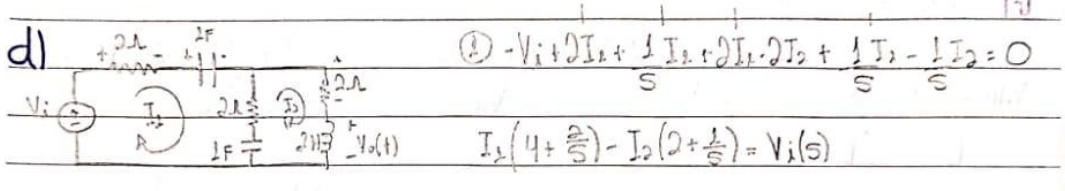 d)
2Ω
1F
+ - + -
Vi
I1
R
2Ω
1F
I2
+
2Ω
-
2H
+
-Vo(t)
① -Vi+2I1+ 1/S I1+2I1-2I2+ 1/S I1- 1/S I2=0
I1(4+ 2/S)-I2(2+ 1/S)=Vi(S)